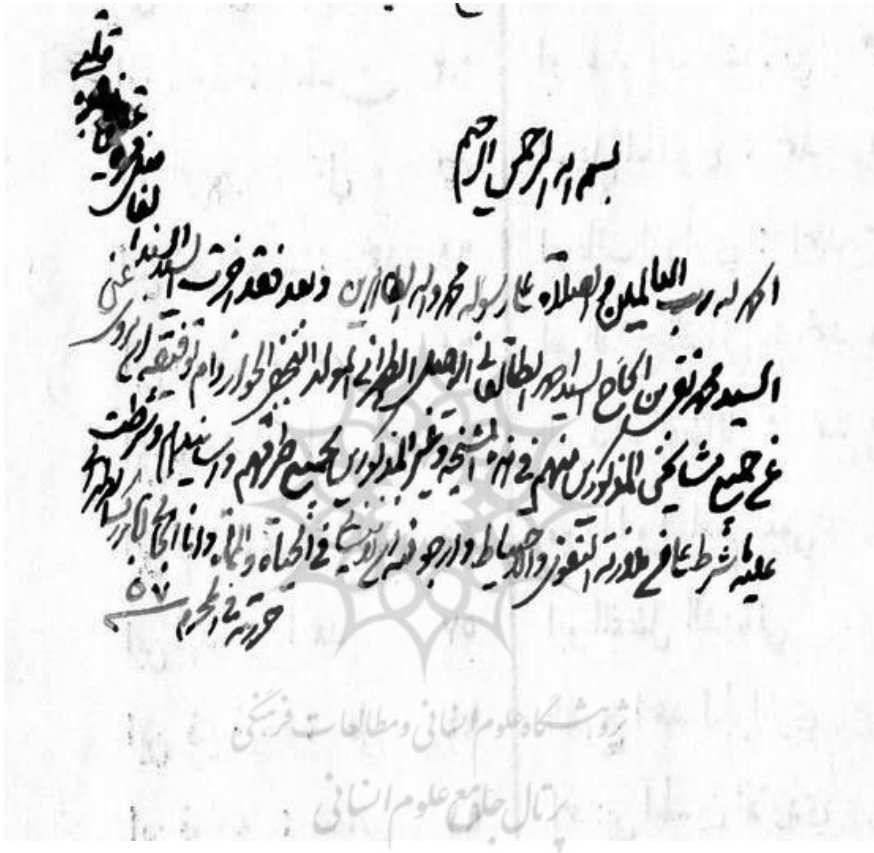 بسم الله الرحمن الرحیم
الحمد لله رب العالمین و الصلاة علی رسوله محمد و آله الطاهرین و بعد فقد اجزت السید السند
السید محمد تقی بن الحاج السید احمد الطالقانی الاصل الطهرانی المولد النجفی الجوار دام توفیقه ان یروی عنی
عن جمیع مشایخی المذکورین منهم فی هذه المشیخة و غیر المذکورین بجمیع طرقهم و اسانیدهم و شرطت
علیه ما شرط علی من ملازمة التقوی و الاحتیاط و ارجو منه ان لا ینسی فی الحیاة و المماة و انا الجانی آقا بزرگ الطهرانی
حررته فی المحرم ۵۷
پژوهشگاه علوم انسانی و مطالعات فرهنگی
پرتال جامع علوم انسانی